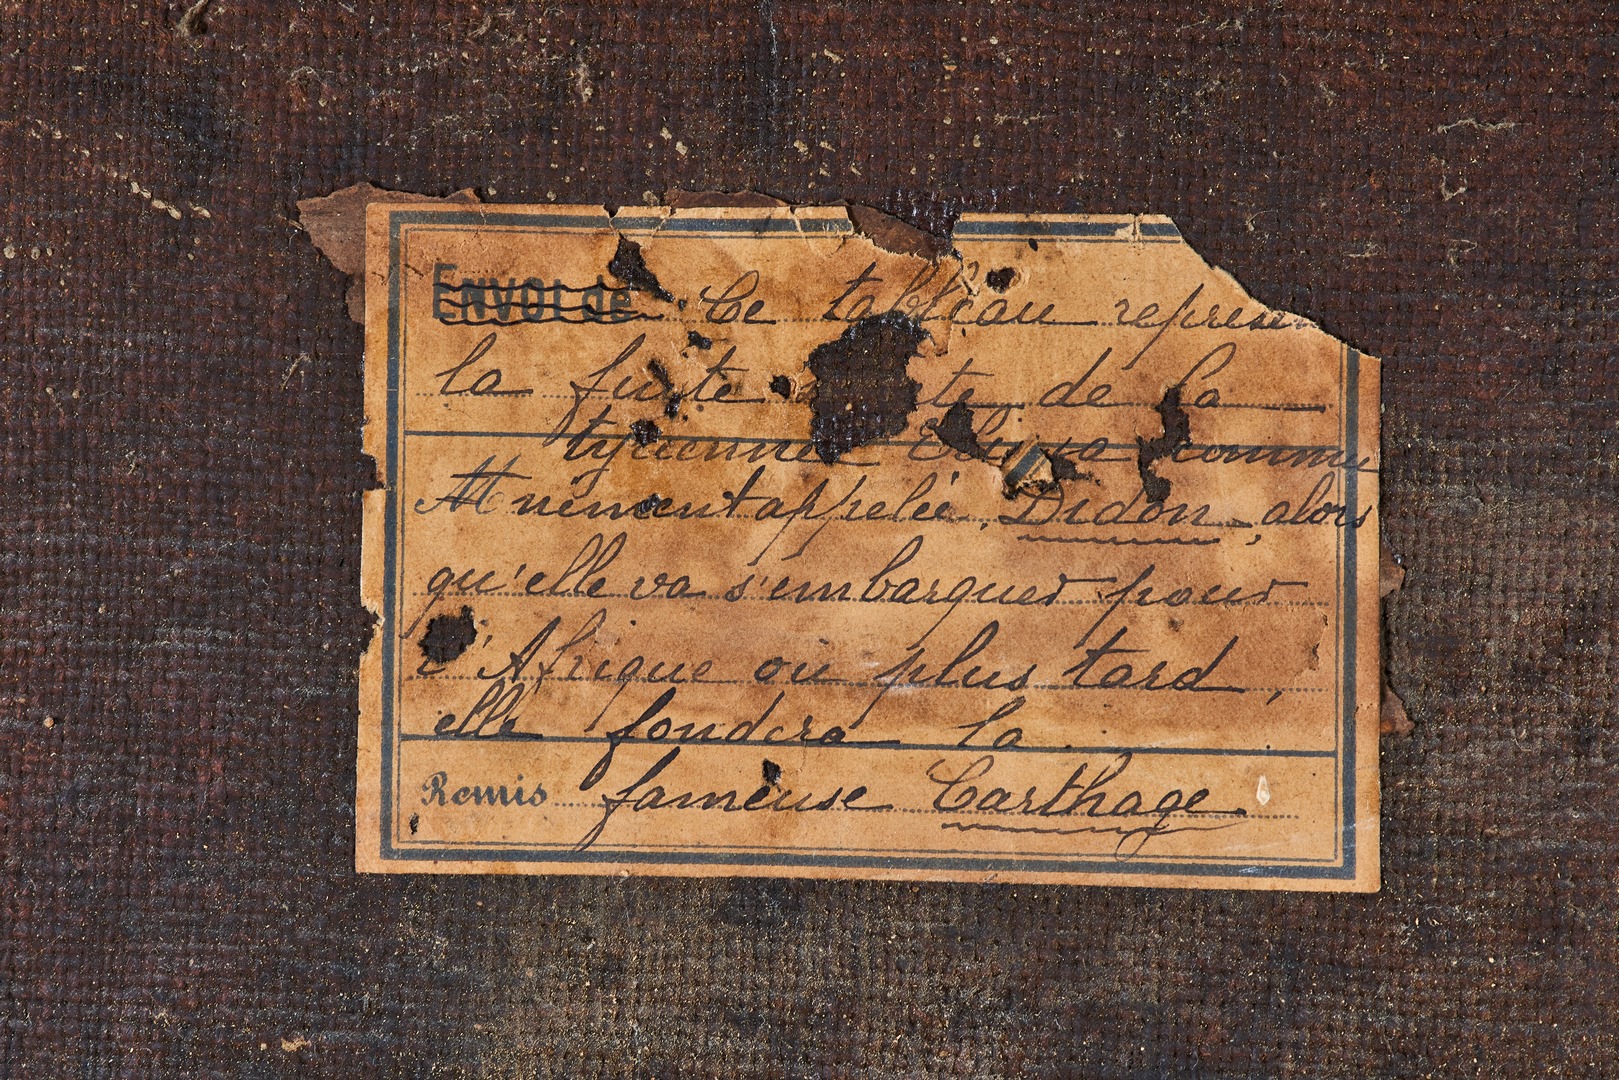 ENVOI de Ce tableau représen
la fuite te de la
tyrienne Elissa commu
nément appelée Didon, alors
qu'elle va s'embarquer pour
l'Afrique où plus tard,
elle fondera la
Remis fameuse Carthage